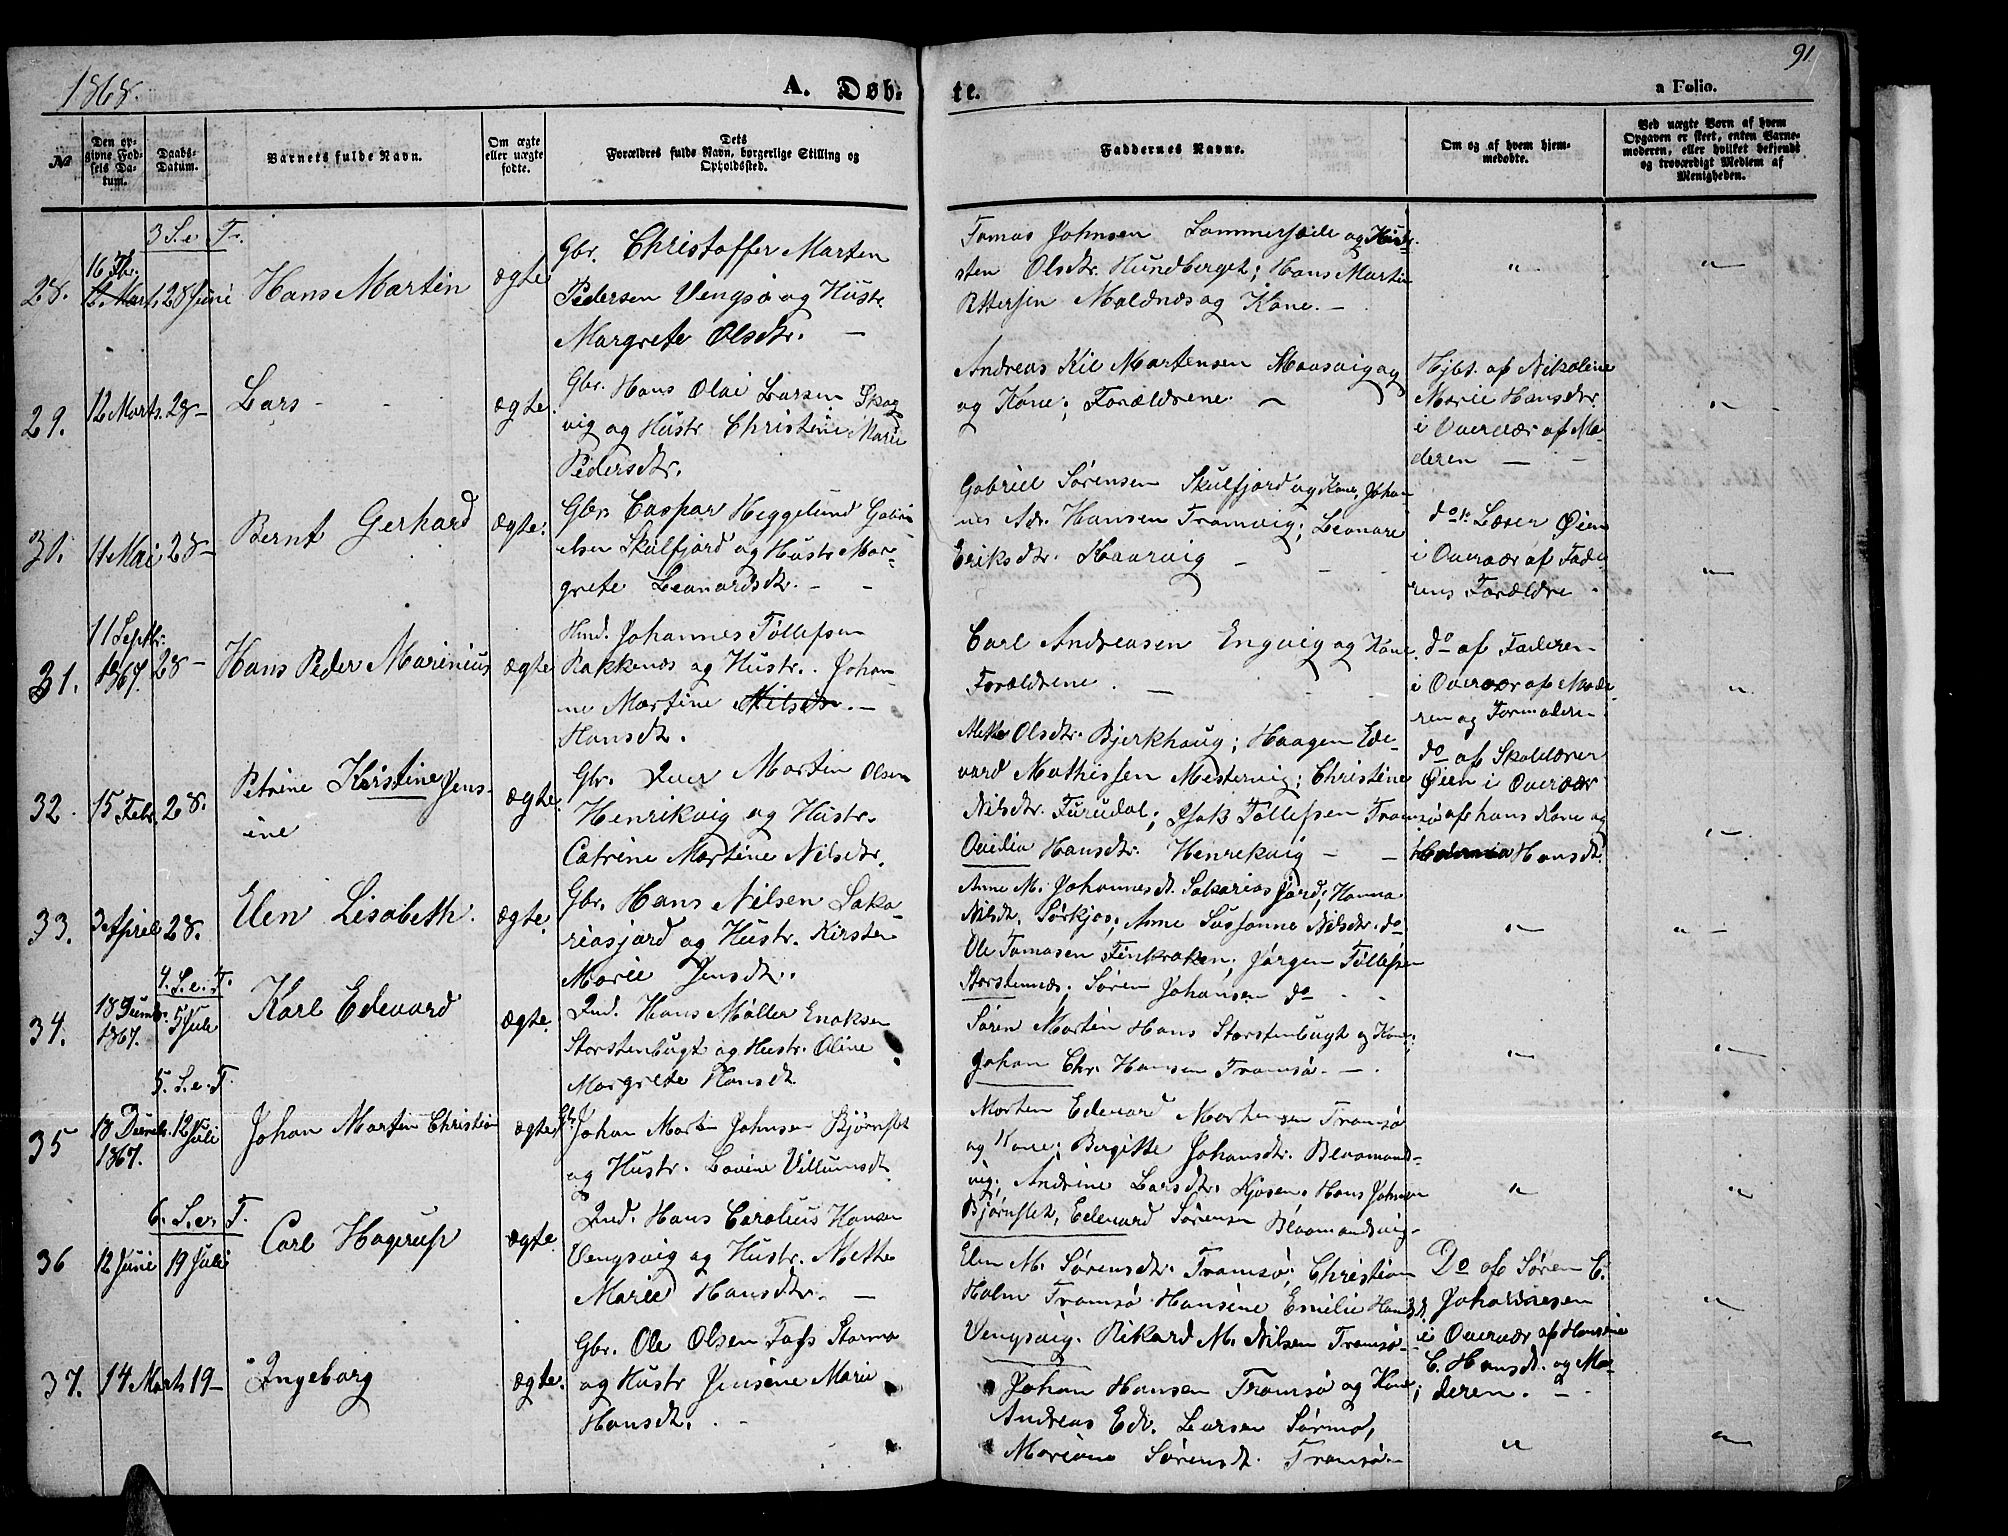 1868.
A. Døb-
te.
91
a Folio.
No
Den op-
givne Fød-
sels Da-
tum.
Daabs-
Datum.
Barnets fulde Navn.
Om ægte
eller uægte
fødte.
Dets
Forældres fulde Navn, borgerlige Stilling og
Opholdssted.
Faddernes Navne.
Om og af hvem hjem-
medøbte.
Ved uægte Børn af hvem
Opgaven er skeet, enten Barne-
moderen, eller hvilket bekjendt
og troværdigt Medlem af
Menigheden.
3 S. e. Tr.
28.
16 Fbr.
12. Marts
28 Juni
Hans Martin
ægte
Gbr. Christoffer Marten
Pedersen Vengsø og Hustr
Margrete Olsdtr. —
Tomas Johnsen Sommersæde og
sten Olsdtr. Hundberget; Hans Martin
Pettersen Maldnæs og Kone. —
"
"
29.
12 Marts.
28 —
Lars - -
ægte.
Gbr. Hans Olai Larsen Skog
vig og Hustr Christine Marie
Pedersdtr.
Andreas Kil Martensen Maasvig og
og Kone; Forældrene —
Hjbt. af Nikoline
Marie Hansdtr.
i Overvær af Mo-
deren — -
"
30.
11 Mai
28 —
Bernt Gerhard
ægte.
Gbr. Caspar Heggelund Gabri
elsen Skulfjord og Hustr. Mar-
grete Leonardsdtr. - -
Gabriel Sørensen Skulfjord og Kone, Johan
nes Adr. Hansen Tromvig; Leonare
Eriksdtr. Kaarvig - - -
do. Lærer Øien
i Overvær af Fade
rens Forældre.
"
31.
11 Septbr.
1867.
28 —
Hans Peder Marinius
ægte
Hmd. Johannes Tollefsen
Bakkenæs og Hustr. Johan-
ne Martine Nilsdtr. —
Hansdt.
Carl Andreasen Engvig og Kone
Forældrene. —
do af Faderen
i Overvær af Mode
ren og Formoderen
"
32.
15 Febr.
28.
Petrine Kirstine Jens-
ine
ægte.
Gbr. Iver Martin Olsen
Henrikvig og Hustr.
Catrine Martine Nilsdtr.
Mette Olsdtr. Bjerkhaug; Haagen Ede-
vard Mathissen Mestervig; Christine
Nilsdtr. Furudal; Isak Tollefsen Tromsø
Ovidia Hansdtr. Henrekvig — -
do af Skolelærer
Øien i Overvær
af hans Kone og
Hansdt.
"
33.
3 April
28.
Elen Lisabeth.
ægte.
Gbr. Hans Nilsen Saka-
riasjord og Hustr. Kirsten
Marie Jensdt.
Anne M. Johannesdt. Sakariasjord; Hanna
Nilsdt. Sørkjos; Anne Susanne Nilsdtr. do
Ole Tomasen Finkroken; Jørgen Tollefsen
Storstennæs; Søren Johansen do - -
"
"
4. S. e. T.
34.
18 Decemb.
1867.
5 Juli
Karl Edevard
ægte.
Ind. Hans Møller Enoksen
Storstenbugt og Hustr. Oline
Margrete Hansdt.
Søren Martin Hans Storstenbugt og Kone;
Johan Chr. Hansen Tromsø. —.
"
"
5. S. e. T.
35
18 Decmb.
1867.
12 Juli
Johan Martin Christian
ægte
Gbr. Johan Martin Johnsen Bjørnslet
og Hustr. Lovine Villumsdt.
Morten Edevard Martensen Tromsø
og Kone; Bergitte Johansdtr. Blaamand-
vig; Andrine Larsdtr. Kjosen. Hans Johnsen
Bjørnslet, Edevard Sørensen Blaamandsvig
"
"
6. S. e. T.
36
12 Juni
19 Juli
Carl Hagerup
ægte.
Ind. Hans Carolius Hansen
Vengsvig og Hustr. Mette
Marie Hansdtr. —
Elen M. Sørensdtr. Tromsø; Christian
Holm Tromsø Hansine Emilie Hansdt.
Vengsvig. Rikard M. Nilsen Tromsø-
Do af Søren C.
Johannesen
i Overvær af Hansine
C. Hansdt. og Mo-
deren. -
"
37.
14 Marts
19 —
Ingeborg
ægte.
Gbr. Ole Olsen Fags Stormo
og Hustr Jensine Marie
Hansdt. -
Johan Hansen Tromsø og Kone;
Andreas Edv. Larsen Sørmo,
Mariane Sørensdt. Tromsø-
"
"